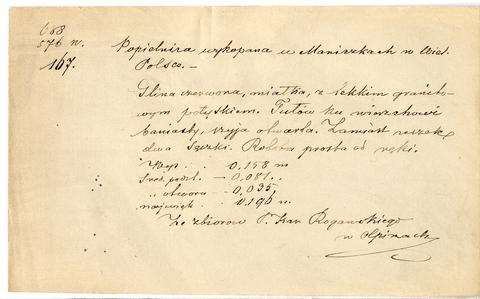 688
576 n.
167.
Popielnica wykopana w Maniszkach w Wiel.
Polsce. —
Glina czerwona, miałka, z lekkim granito-
wym połyskiem. Tułów ku wierzchowi
baniasty, szyja otwarta. Zamiast uszek
dwa sęczki. Robota prosta od ręki.
Wys. . . 0,158 m
Śred. podst. — 0,081 . .
„ otworu — 0,095.
najwięk. . 0.196 n.
Ze zbiorów P. Kar. Rogawskiego
w Ołpinach